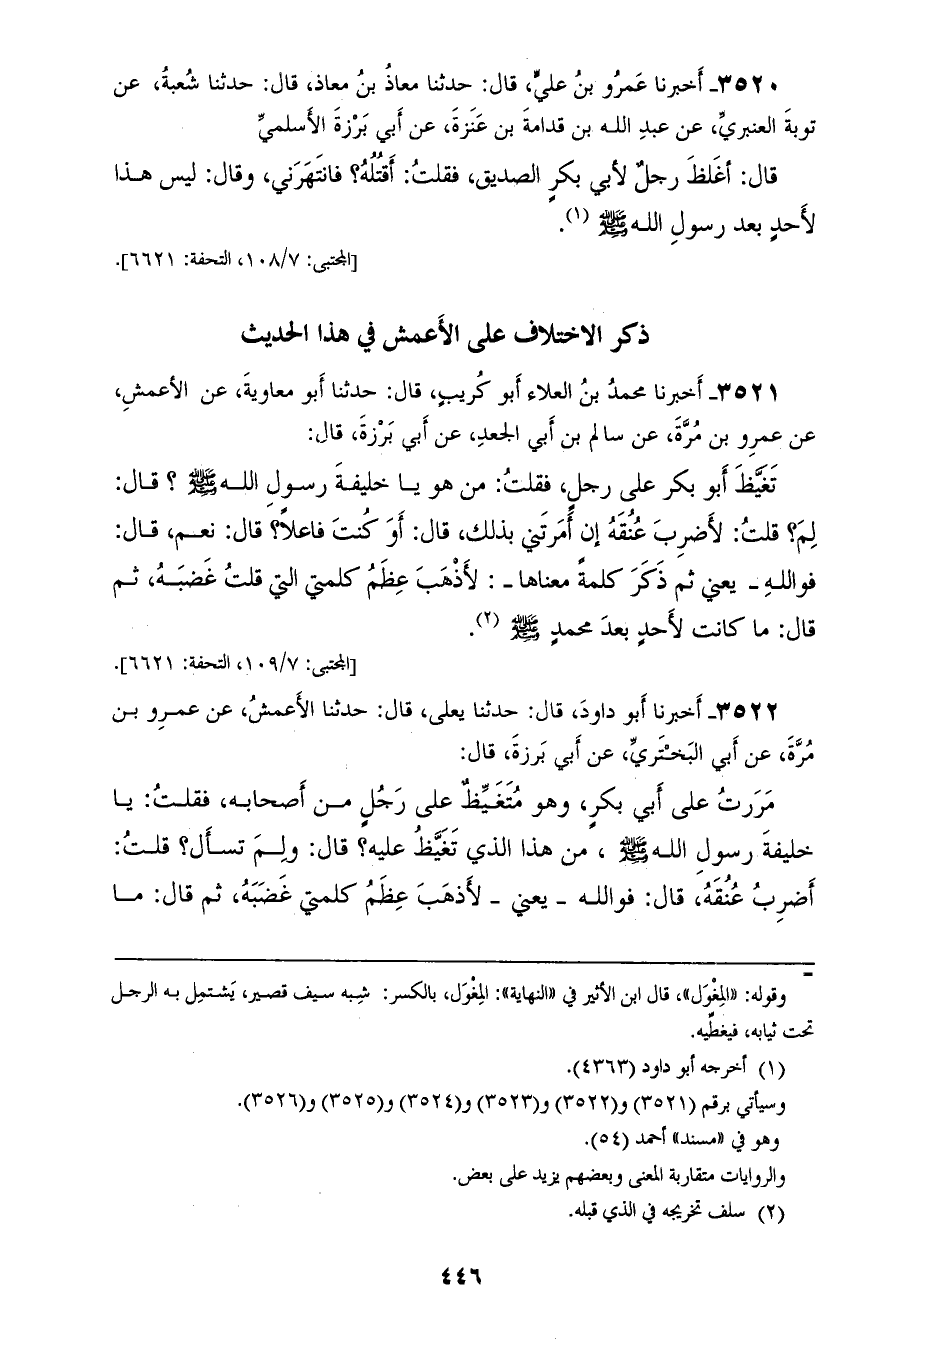 ٣٥٢٠ـ أَخبرنا عَمرُو بنُ عليٍّ، قال: حدثنا معاذُ بنُ معاذ، قال: حدثنا شُعبةُ، عن
توبةَ العنبريِّ، عن عبدِ الله بن قدامةَ بن عَنَزةَ، عن أَبي بَرْزةَ الأَسلميِّ
قال: أَغلظَ رجلٌ لأَبي بكرٍ الصديق، فقلتُ: أَقتُلُهُ؟ فانتَهَرَني، وقال: ليس هـذا
لأَحدٍ بعد رسولِ اللهﷺ (١).
[المجتبى: ١٠٨/٧، التحفة: ٦٦٢١].
ذكر الاختلاف على الأَعمش في هذا الحديث
٣٥٢١ـ أَخبرنا محمدُ بنُ العلاء أَبو كُريبٍ، قال: حدثنا أَبو معاويةَ، عن الأَعمشِ،
عن عمرِو بن مُرَّةَ، عن سالم بن أَبي الجعدِ، عن أَبي بَرْزةَ، قال:
تَغَيَّظَ أَبو بكر على رجلٍ، فقلتُ: من هو يـا خليفةَ رسولِ اللهﷺ ؟ قـال:
لِمَ؟ قلتُ: لأَضرِبَ عُنُقَهُ إن أَمرَتَني بذلك، قال: أَوَ كُنتَ فاعلاً؟ قال: نعـم، قـال:
فواللهِ ـ يعني ثم ذَكَرَ كلمةً معناها ـ : لأَذْهَبَ عِظَمُ كلمتي التي قلتُ غَضبَـهُ، ثـم
قال: ما كانت لأَحدٍ بعدَ محمدٍ ﷺ (٢).
[المجتبى: ١٠٩/٧، التحفة: ٦٦٢١].
٣٥٢٢ـ أَخبرنا أَبو داودَ، قال: حدثنا يعلى، قال: حدثنا الأَعمشُ، عن عمـرِو بـن
مُرَّةَ، عن أَبي البَخْتَريِّ، عن أَبي بَرزةَ، قال:
مَرَرتُ على أَبي بكرٍ، وهو مُتَغَيِّظٌ على رَجُلٍ مـن أَصحابـه، فقلـتُ: يـا
خليفةَ رسولِ اللهﷺ ، من هذا الذي تَغَيَّظُ عليه؟ قال: ولِـمَ تسأَل؟ قلـتُ:
أَضرِبُ عُنُقَهُ، قال: فوالله ـ يعني ـ لأَذهَبَ عِظَمُ كلمتي غَضَبَهُ، ثم قال: مـا
وقوله: «المِغْوَل»، قال ابن الأثير في «النهاية»: المِغْوَل، بالكسر: شِبه سيف قصير، يَشتمِل بـه الرجل
تحت ثيابه، فيغطّيه.
(١) أخرجه أبو داود (٤٣٦٣).
وسيأتي برقم (٣٥٢١) و(٣٥٢٢) و(٣٥٢٣) و(٣٥٢٤) و(٣٥٢٥) و(٣٥٢٦).
وهو في «مسند» أحمد (٥٤).
والروايات متقاربة المعنى وبعضهم يزيد على بعض.
(٢) سلف تخريجه في الذي قبله.
٤٤٦